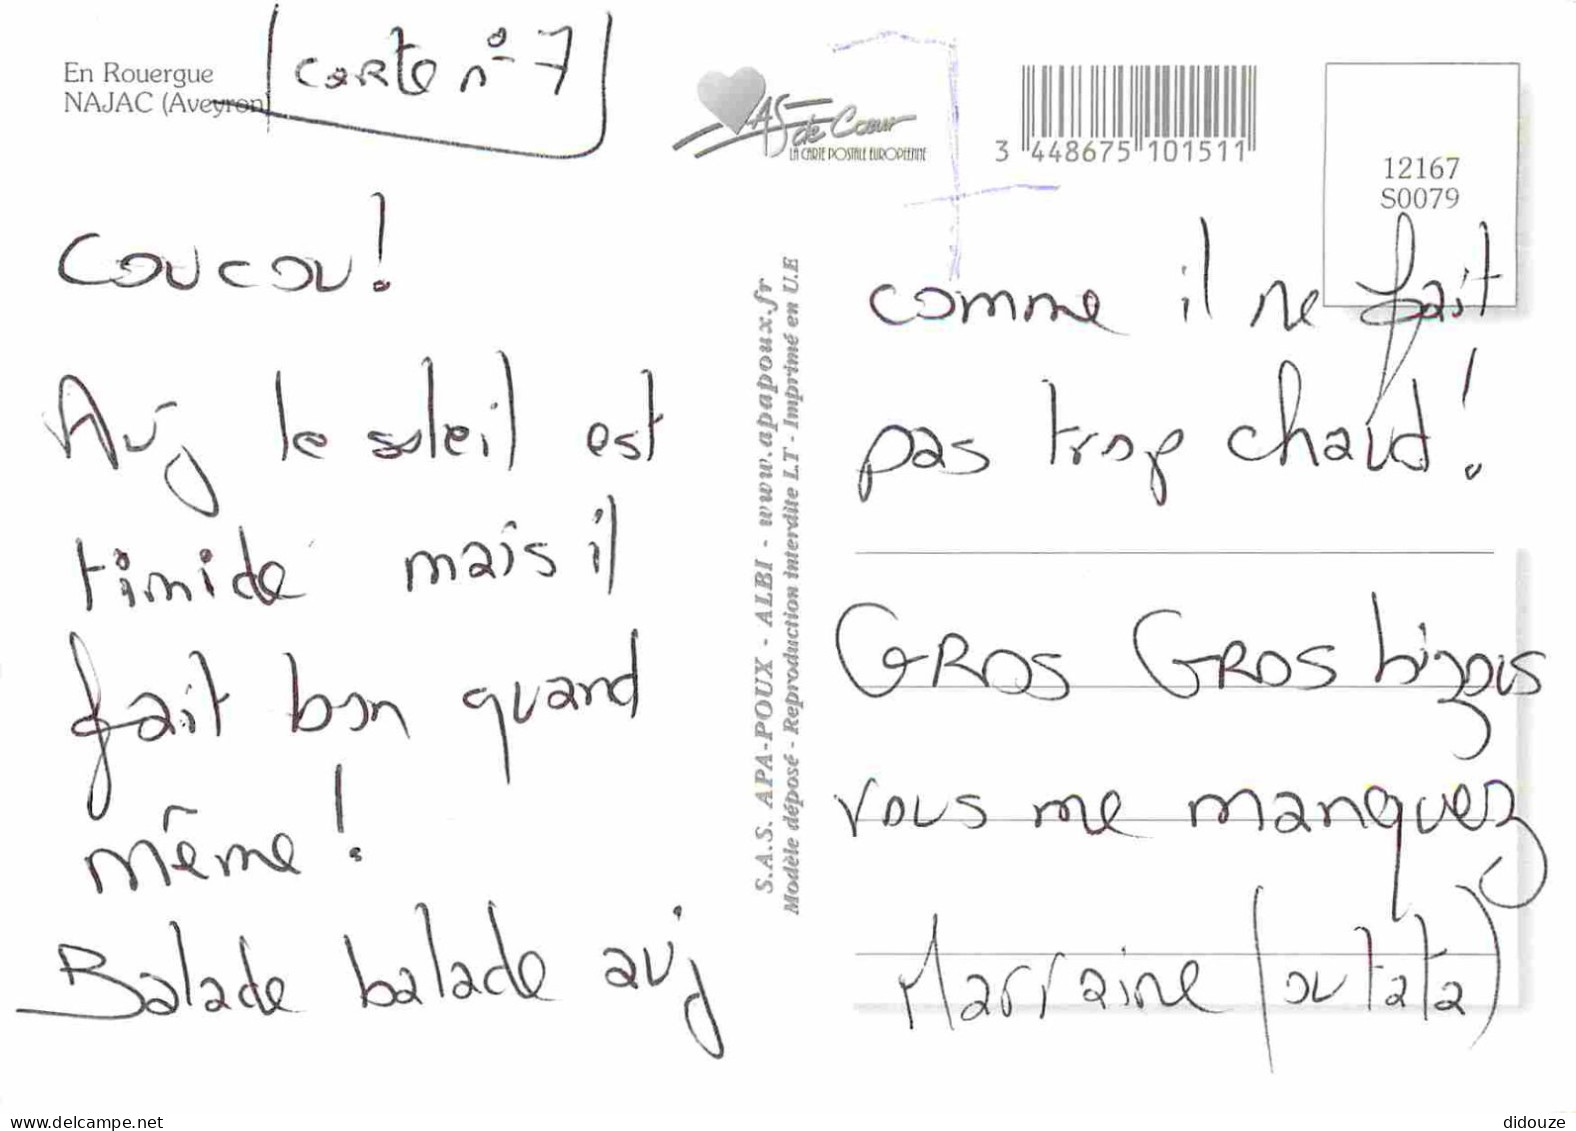 En Rouergue
NAJAC (Aveyron)
carte n° 7
AS de Cœur
LA CARTE POSTALE EUROPEENNE
3 448675 101511
12167
S0079
coucou!
Auj le soleil est
timide mais il
fait bon quand
même!
Balade balade auj
S.A.S. APA-POUX - ALBI - www.apapoux.fr
Modèle déposé - Reproduction interdite LT - Imprimé en U.E
comme il ne fait
pas trop chaud!
GROS GROS bizous
vous me manquez
Marraine (ou tata)
delcampe.net
didouze